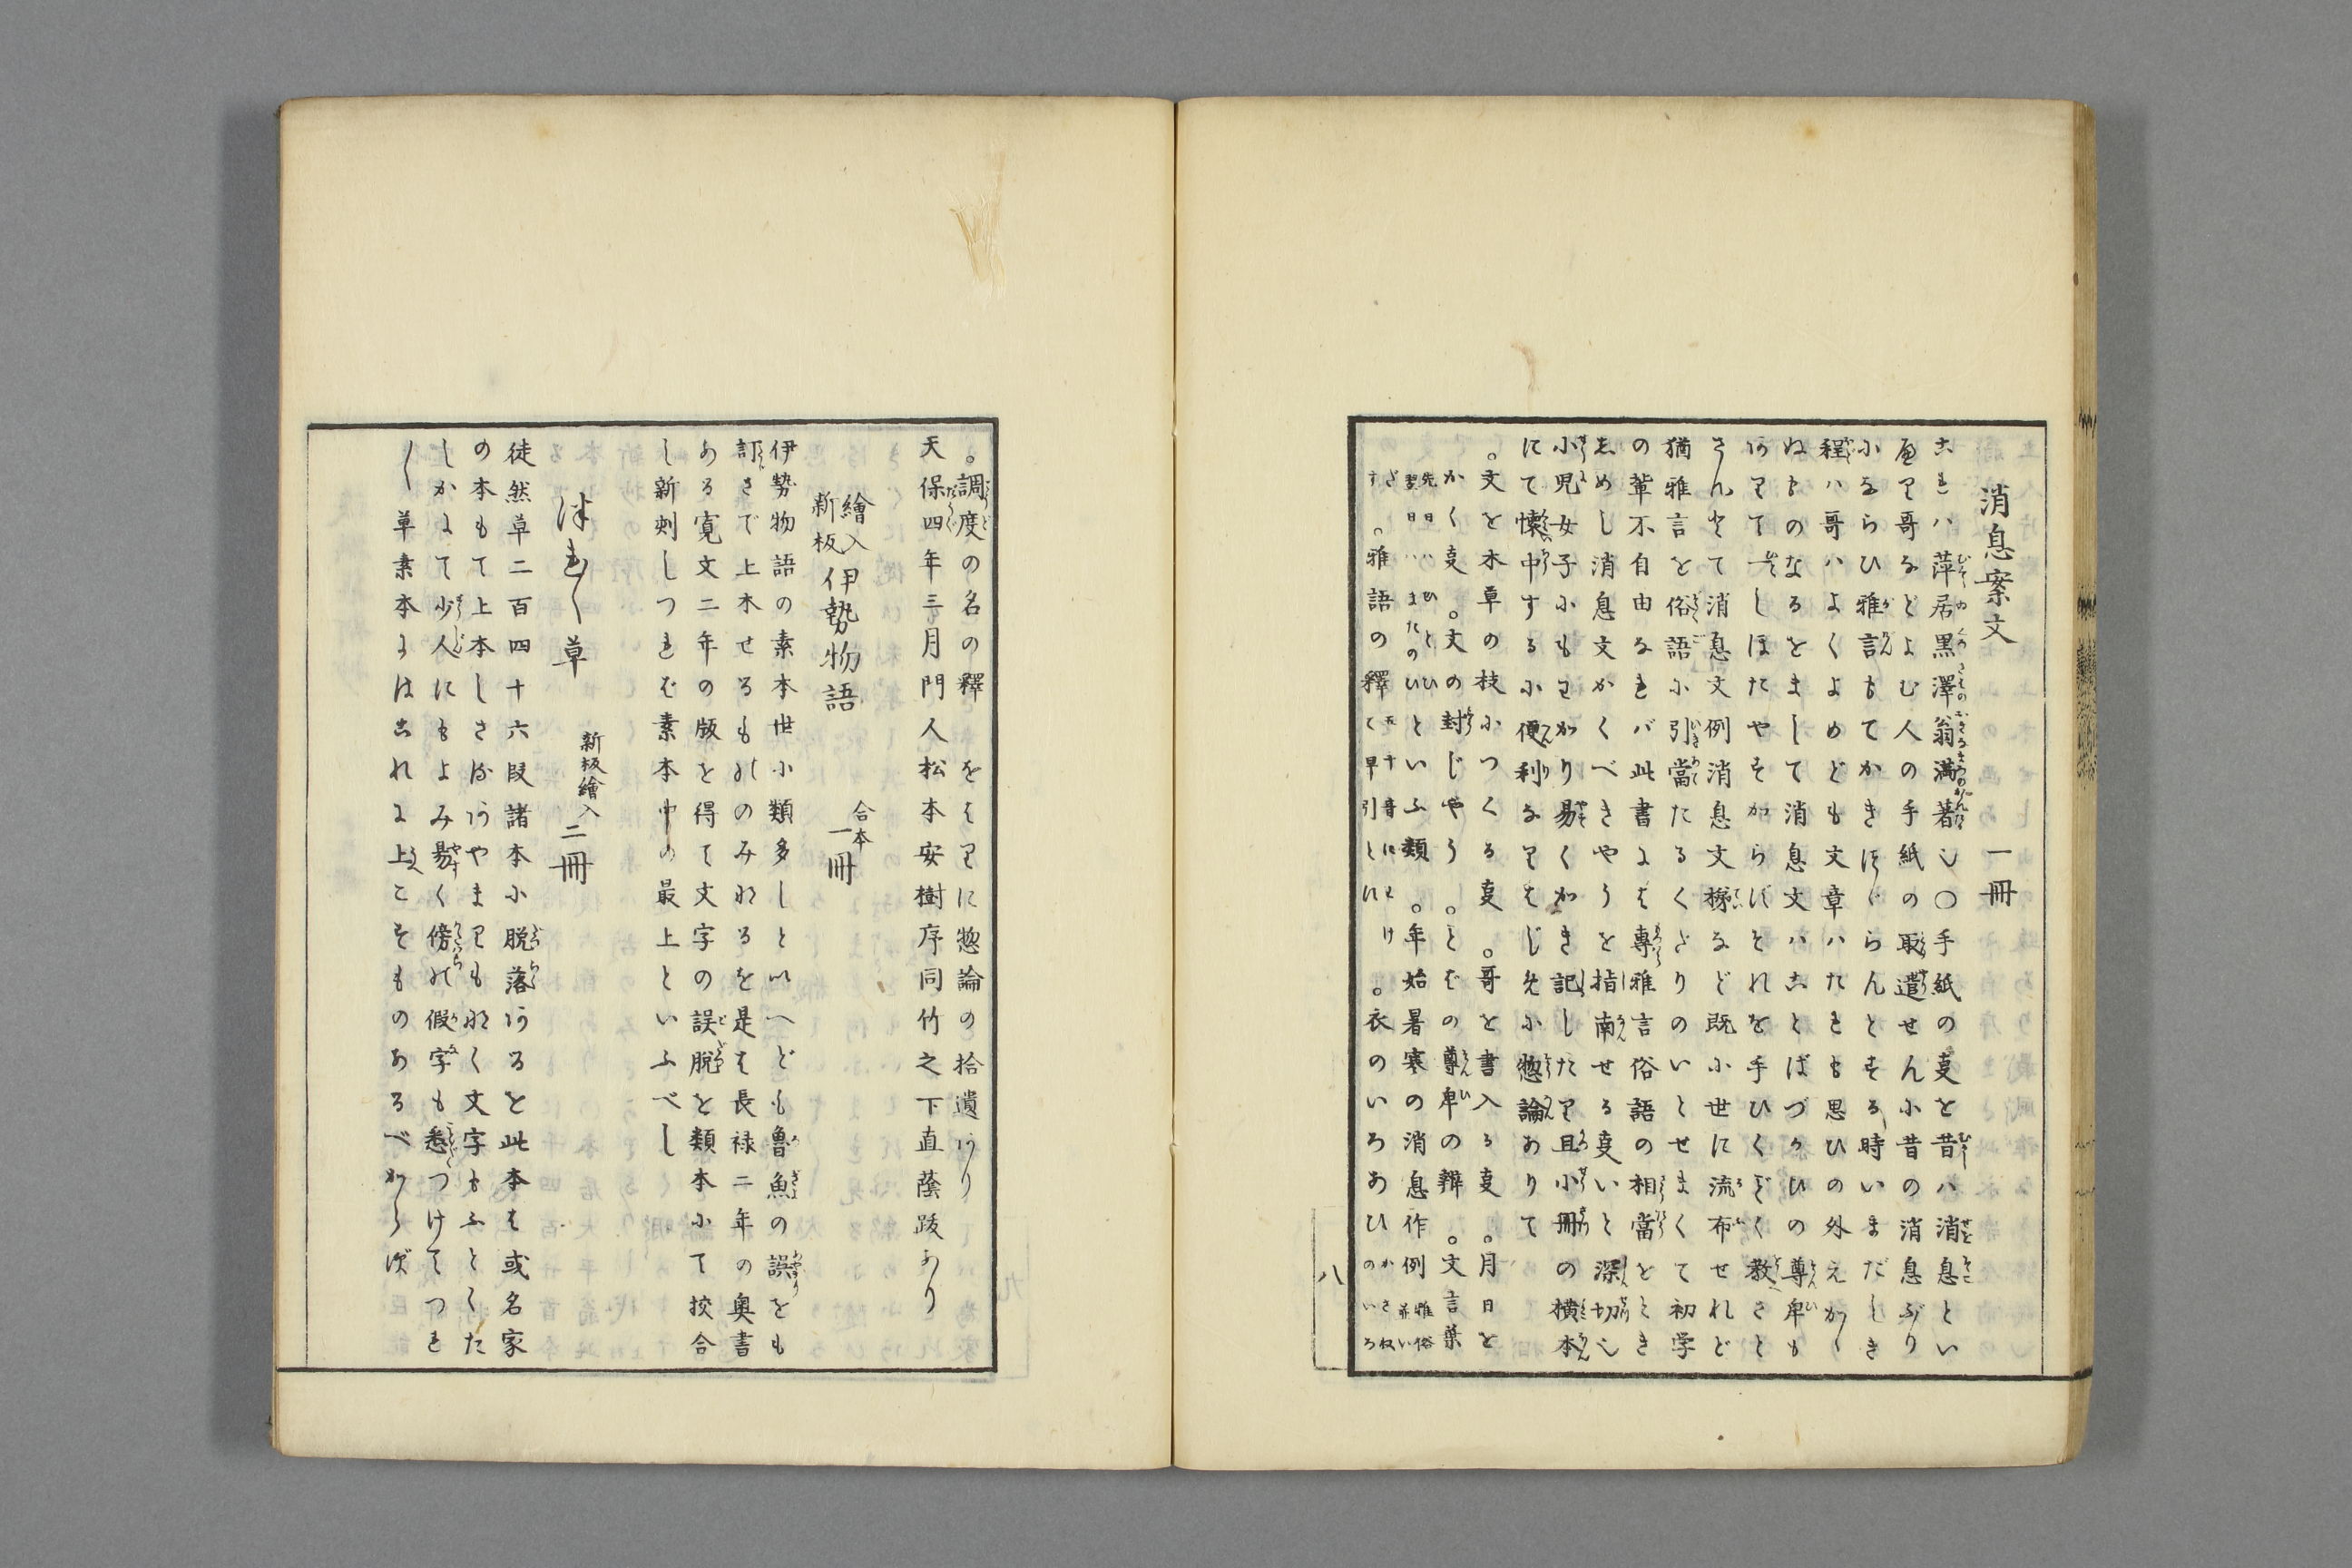 消息案文 一冊
これハ萍居黒澤翁満著也〇手紙の事を昔ハ消息とい
へり哥などよむ人の手紙の取遣せんに昔の消息ぶり
にならひ雅言もてかきつゞらんとする時いまだしき
程ハ哥ハよくよめども文章ハたえも思ひの外えかゝ
ぬものなるをまして消息文ハことばづかひの尊卑も
ありて一しほたやすからねばそれを手ひくばく教さと
さんとて消息文例消息文梯など既に世に流布せれど
猶雅言を俗語に引當たるくだりのいとせまくて初学
の輩不自由なれバ此書にハ專雅言俗語の相當をとき
しめし消息文かくべきやうを指南せる事いと深切也
小児女子にもわかり易くかき記したり且小冊の横本
にて懐中するに便利なりはじめに惣論ありて
。文を木草の枝につくる事。哥を書入る事。月日を
かく事。文の封じやう。とばの尊卑の辨。文言葉
先日ハひとひ
翌日ハまたのひ
といふ類。年始暑寒の消息作例
雅俗
并い
ざ
す
。雅語の釋
五十音にわけ
て早引とに
。衣のいろあひ
かさね
のいろ
八
。調度の名の釋をはりに惣論の拾遺あり
天保四年三月門人松本安樹序同竹之下直蔭跋あり
繪入
新板
伊勢物語
合本
一冊
伊勢物語の素本世に類多しといへども魯魚の誤をも
訂さで上木せるもののみなるを是は長禄二年の奥書
ある寛文二年の版を得て文字の誤脱を類本にて挍合
し新刻しつれば素本中の最上といふべし
つれ〱草
新板繪入
二冊
徒然草二百四十六段諸本に脱落あるを此本は或名家
の本もて上本しさればあやまりもなく文字もふとくた
しかにて少人にもよみ易く傍の假字も悉つけてつれ
〱草素本にはこれに上こそものあるべからず